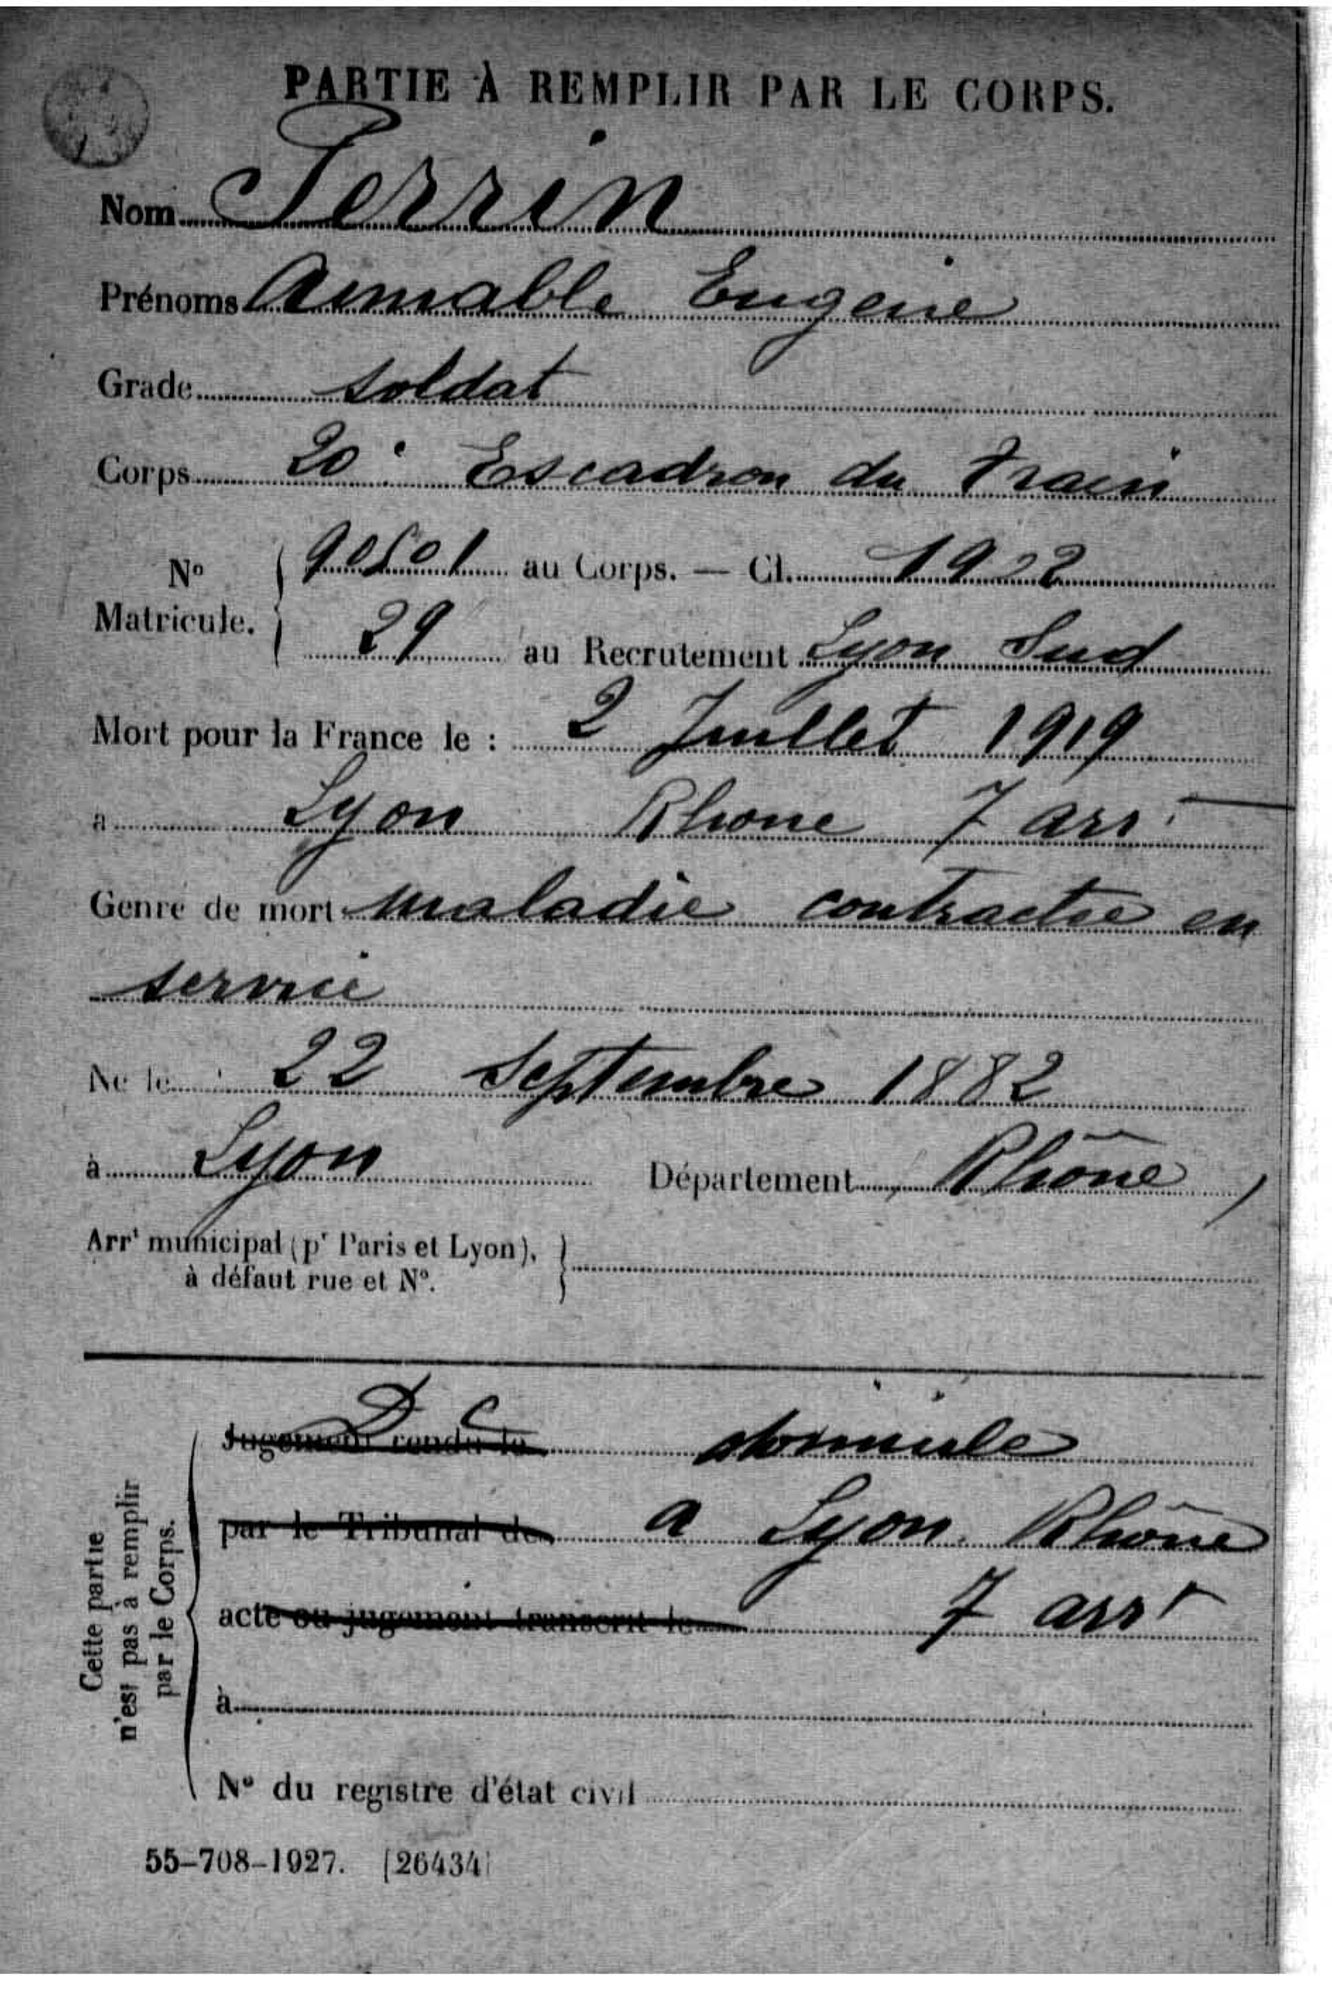 PARTIE À REMPLIR PAR LE CORPS.
Nom Perrin
Prénoms Aimable Eugène
Grade soldat
Corps 20e Escadron du Train
No Matricule. 90501 au Corps. — Cl. 1902
29 au Recrutement Lyon Sud
Mort pour la France le : 2 Juillet 1919
a Lyon Rhone 7 arrt
Genre de mort maladie contractee en
service
Né le 22 Septembre 1882
à Lyon Département Rhône
Arrt municipal (pr Paris et Lyon),
à défaut rue et No.
Cette partie
n'est pas à remplir
par le Corps.
Jugement rendu le D C domicile
par le Tribunal de a Lyon Rhône
acte ou jugement transcrit le 7 arrt
à
No du registre d'état civil
55-708-1927. [26434]